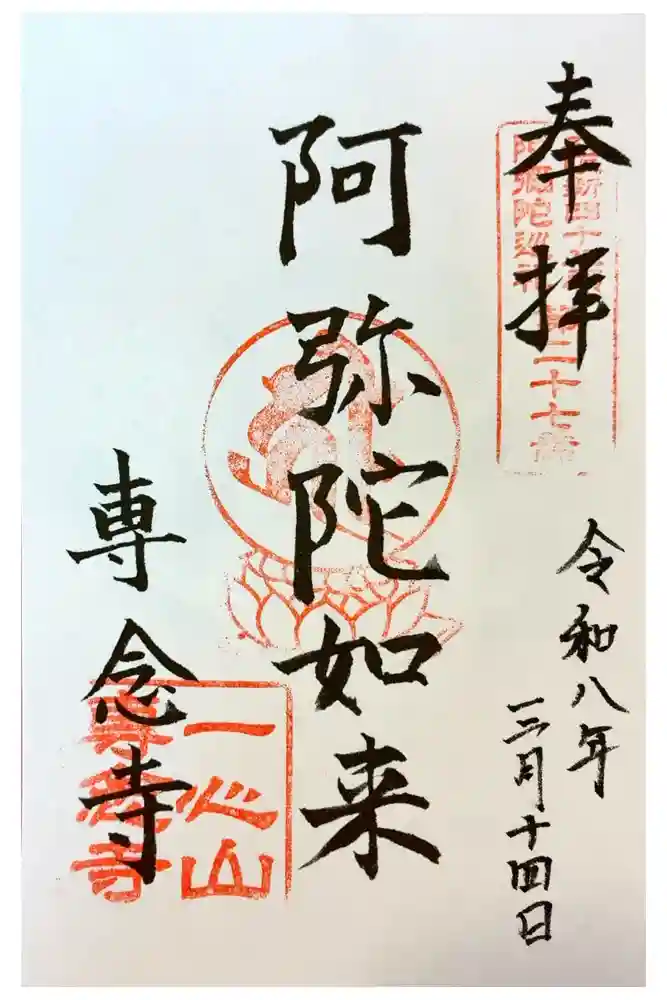 奉拝
第二十七番
令和八年
三月十四日
阿弥陀如来
専念寺
一心山
専念寺